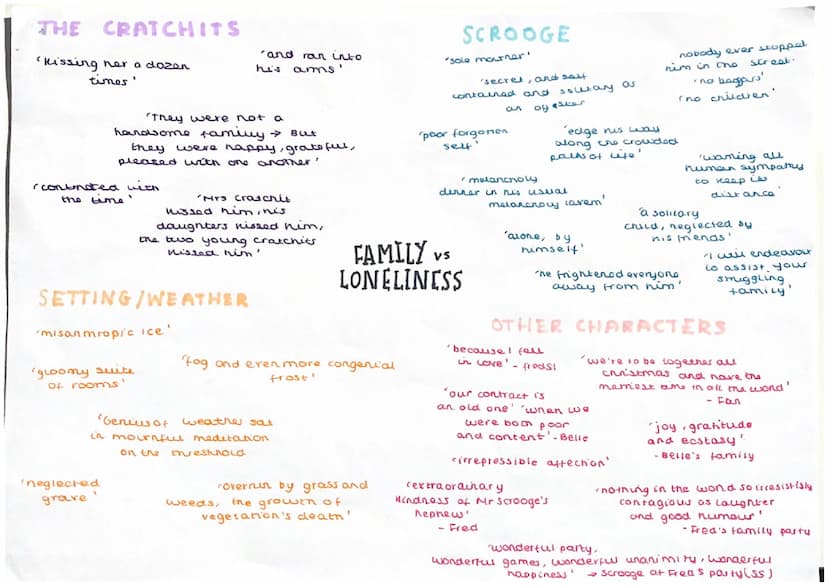 THE CRATCHITS
'Kissing her a dozen
times'
'and ran into
his arms'
'They were not a
handsome family → But
they were happy, grateful,
pleased with one another'
'contented with
the time'
'Mrs Cratchit
kissed him, his
daughters kissed him,
the two young cratchits
kissed him'
SCROOGE
'sole mourner'
nobody ever stopped
him in the street.
'no beggars'
'no children'
'secret, and self
contained and solitary as
an oyster
'poor forgotten
self'
'edge his way
along the crowded
paths of life'
'warning all
human sympathy
to keep its
distance'
'melancholy
dinner in his usual
melancholy tavern'
'a solitary
child, neglected by
his friends'
'alone, by
himself'
'he frightened everyone
away from him'
'I will endeavour
to assist your
struggling
family'
FAMILY vs
LONELINESS
SETTING/WEATHER
'misanthropic ice'
'gloomy suite
of rooms'
'fog and even more congenial
frost'
'Genius of weather sat
in mournful meditation
on the threshold
'neglected
grave'
'overrun by grass and
weeds, the growth of
vegetation's death'
OTHER CHARACTERS
'because I fell
in love' -
'we're to be together all
christmas and have the
merriest time in all the world'
- Fan
'our contract is
an old one' 'when we
were both poor
and content' - Belle
'joy, gratitude
and ecstasy'
- Belle's family
'irrepressible affection'
'extraordinary
kindness of Mr Scrooge's
nephew'
- Fred
'nothing in the world so irresistibly
contagious as laughter
and good humour'
- Fred's family party
'wonderful party,
wonderful games, wonderful unanimity, wonderful
happiness' → Scrooge at Fred's party (S5)